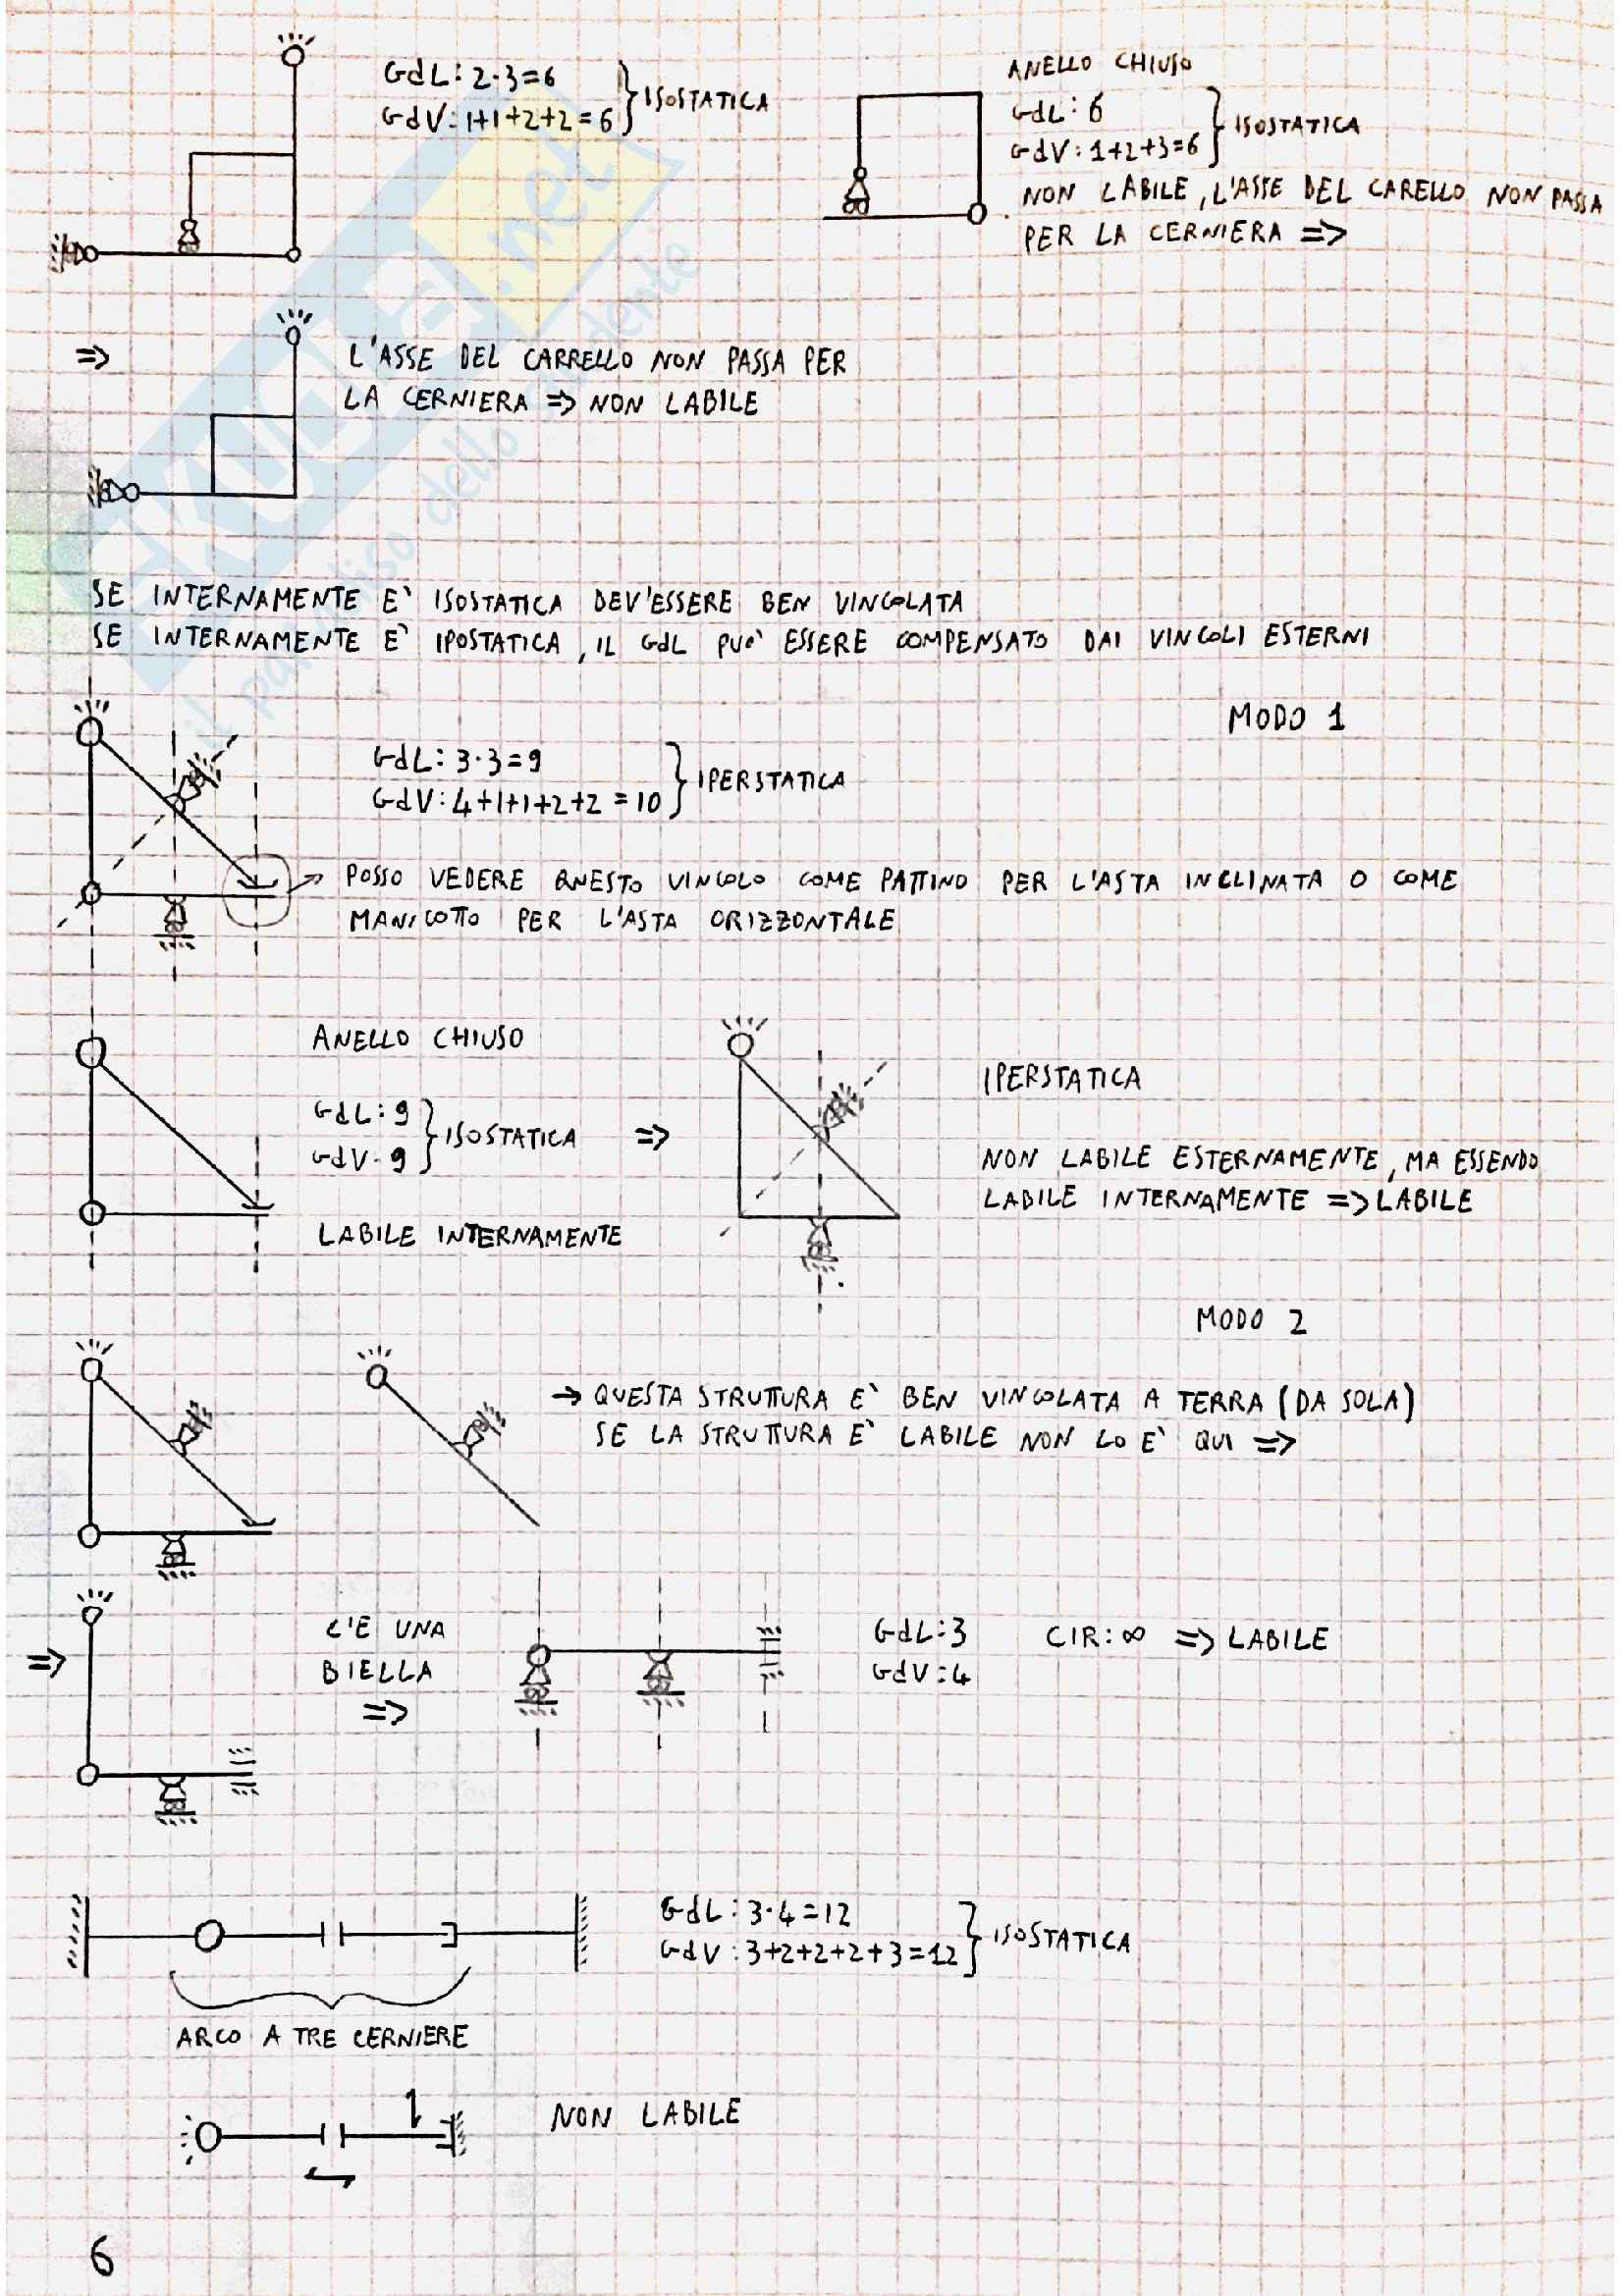 GdL: 2·3=6
GdV: 1+1+2+2=6
ISOSTATICA
ANELLO CHIUSO
GdL: 6
GdV: 1+2+3=6
ISOSTATICA
NON LABILE, L'ASSE DEL CARELLO NON PASSA
PER LA CERNIERA =>
=>
L'ASSE DEL CARRELLO NON PASSA PER
LA CERNIERA => NON LABILE
SE INTERNAMENTE E' ISOSTATICA DEV'ESSERE BEN VINCOLATA
SE INTERNAMENTE E' IPOSTATICA, IL GdL PUO' ESSERE COMPENSATO DAI VINCOLI ESTERNI
MODO 1
GdL: 3·3=9
GdV: 4+1+1+2+2=10
IPERSTATICA
POSSO VEDERE QUESTO VINCOLO COME PATTINO PER L'ASTA INCLINATA O COME
MANICOTTO PER L'ASTA ORIZZONTALE
ANELLO CHIUSO
GdL: 9
GdV: 9
ISOSTATICA =>
LABILE INTERNAMENTE
IPERSTATICA
NON LABILE ESTERNAMENTE, MA ESSENDO
LABILE INTERNAMENTE => LABILE
MODO 2
→ QUESTA STRUTTURA E' BEN VINCOLATA A TERRA (DA SOLA)
SE LA STRUTTURA E' LABILE NON LO E' QUI =>
=>
C'E UNA
BIELLA
=>
GdL: 3
GdV: 4
CIR: ∞ => LABILE
GdL: 3·4=12
GdV: 3+2+2+2+3=12
ISOSTATICA
ARCO A TRE CERNIERE
NON LABILE
6
SKUOLA.net
il paradiso dello studente